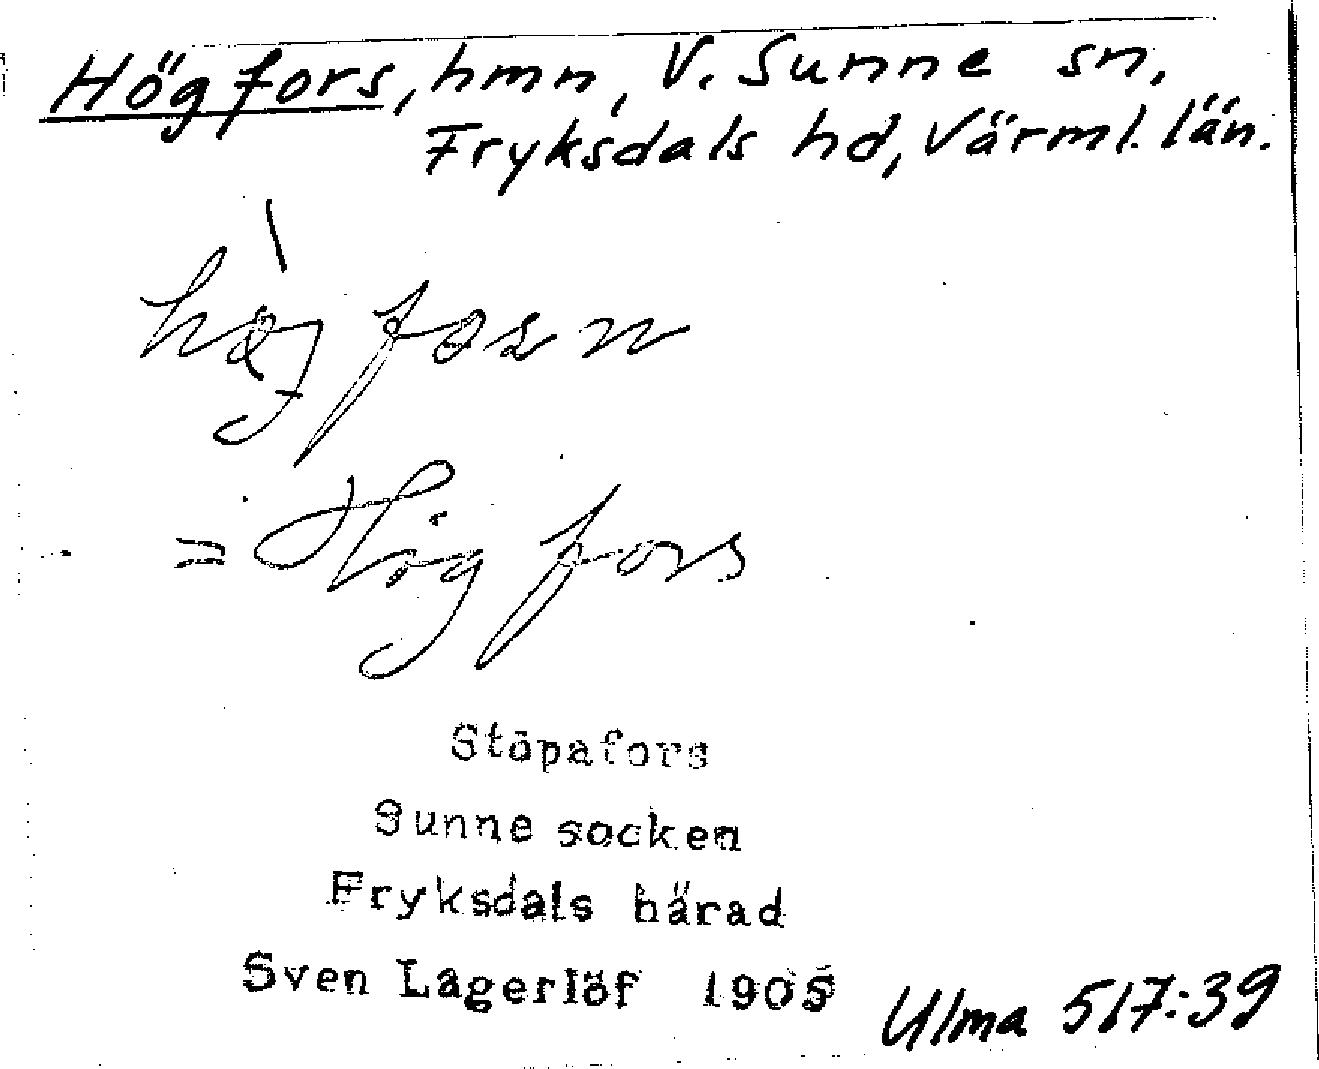 Högfors, hmn, V. Sunne sn,
Fryksdals hd, Värml. län.
= Högfors
Stöpafors
Sunne socken
Fryksdals härad
Sven Lagerlöf 1905
Ulma 517:39